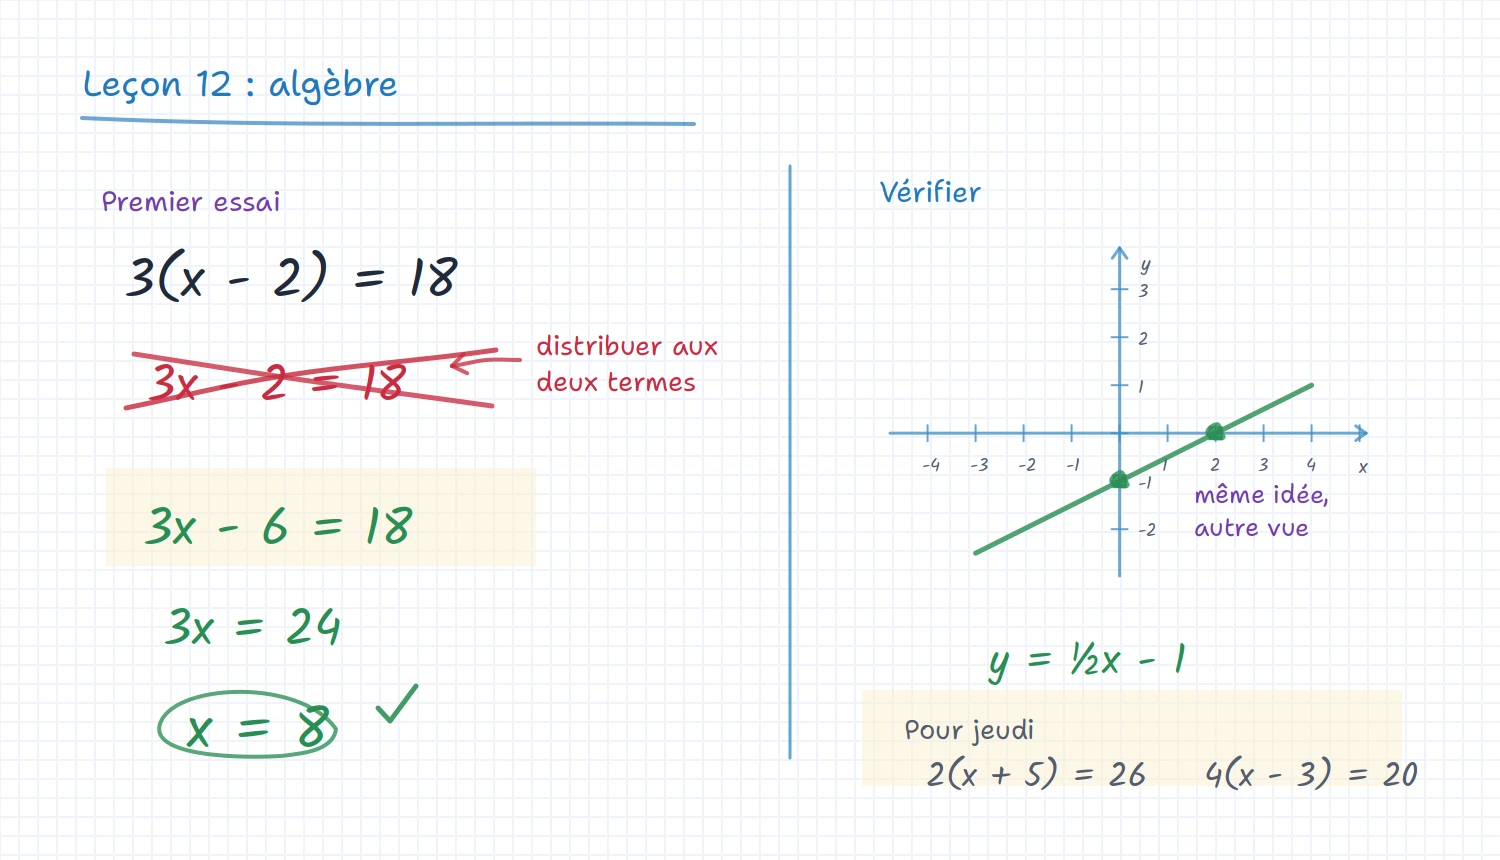 Leçon 12 : algèbre
Premier essai
3(x - 2) = 18
3x - 2 = 18
distribuer aux
deux termes
3x - 6 = 18
3x = 24
x = 8
Vérifier
y
3
2
1
-4 -3 -2 -1 1 2 3 4 x
-1
-2
même idée,
autre vue
y = ½x - 1
Pour jeudi
2(x + 5) = 26 4(x - 3) = 20